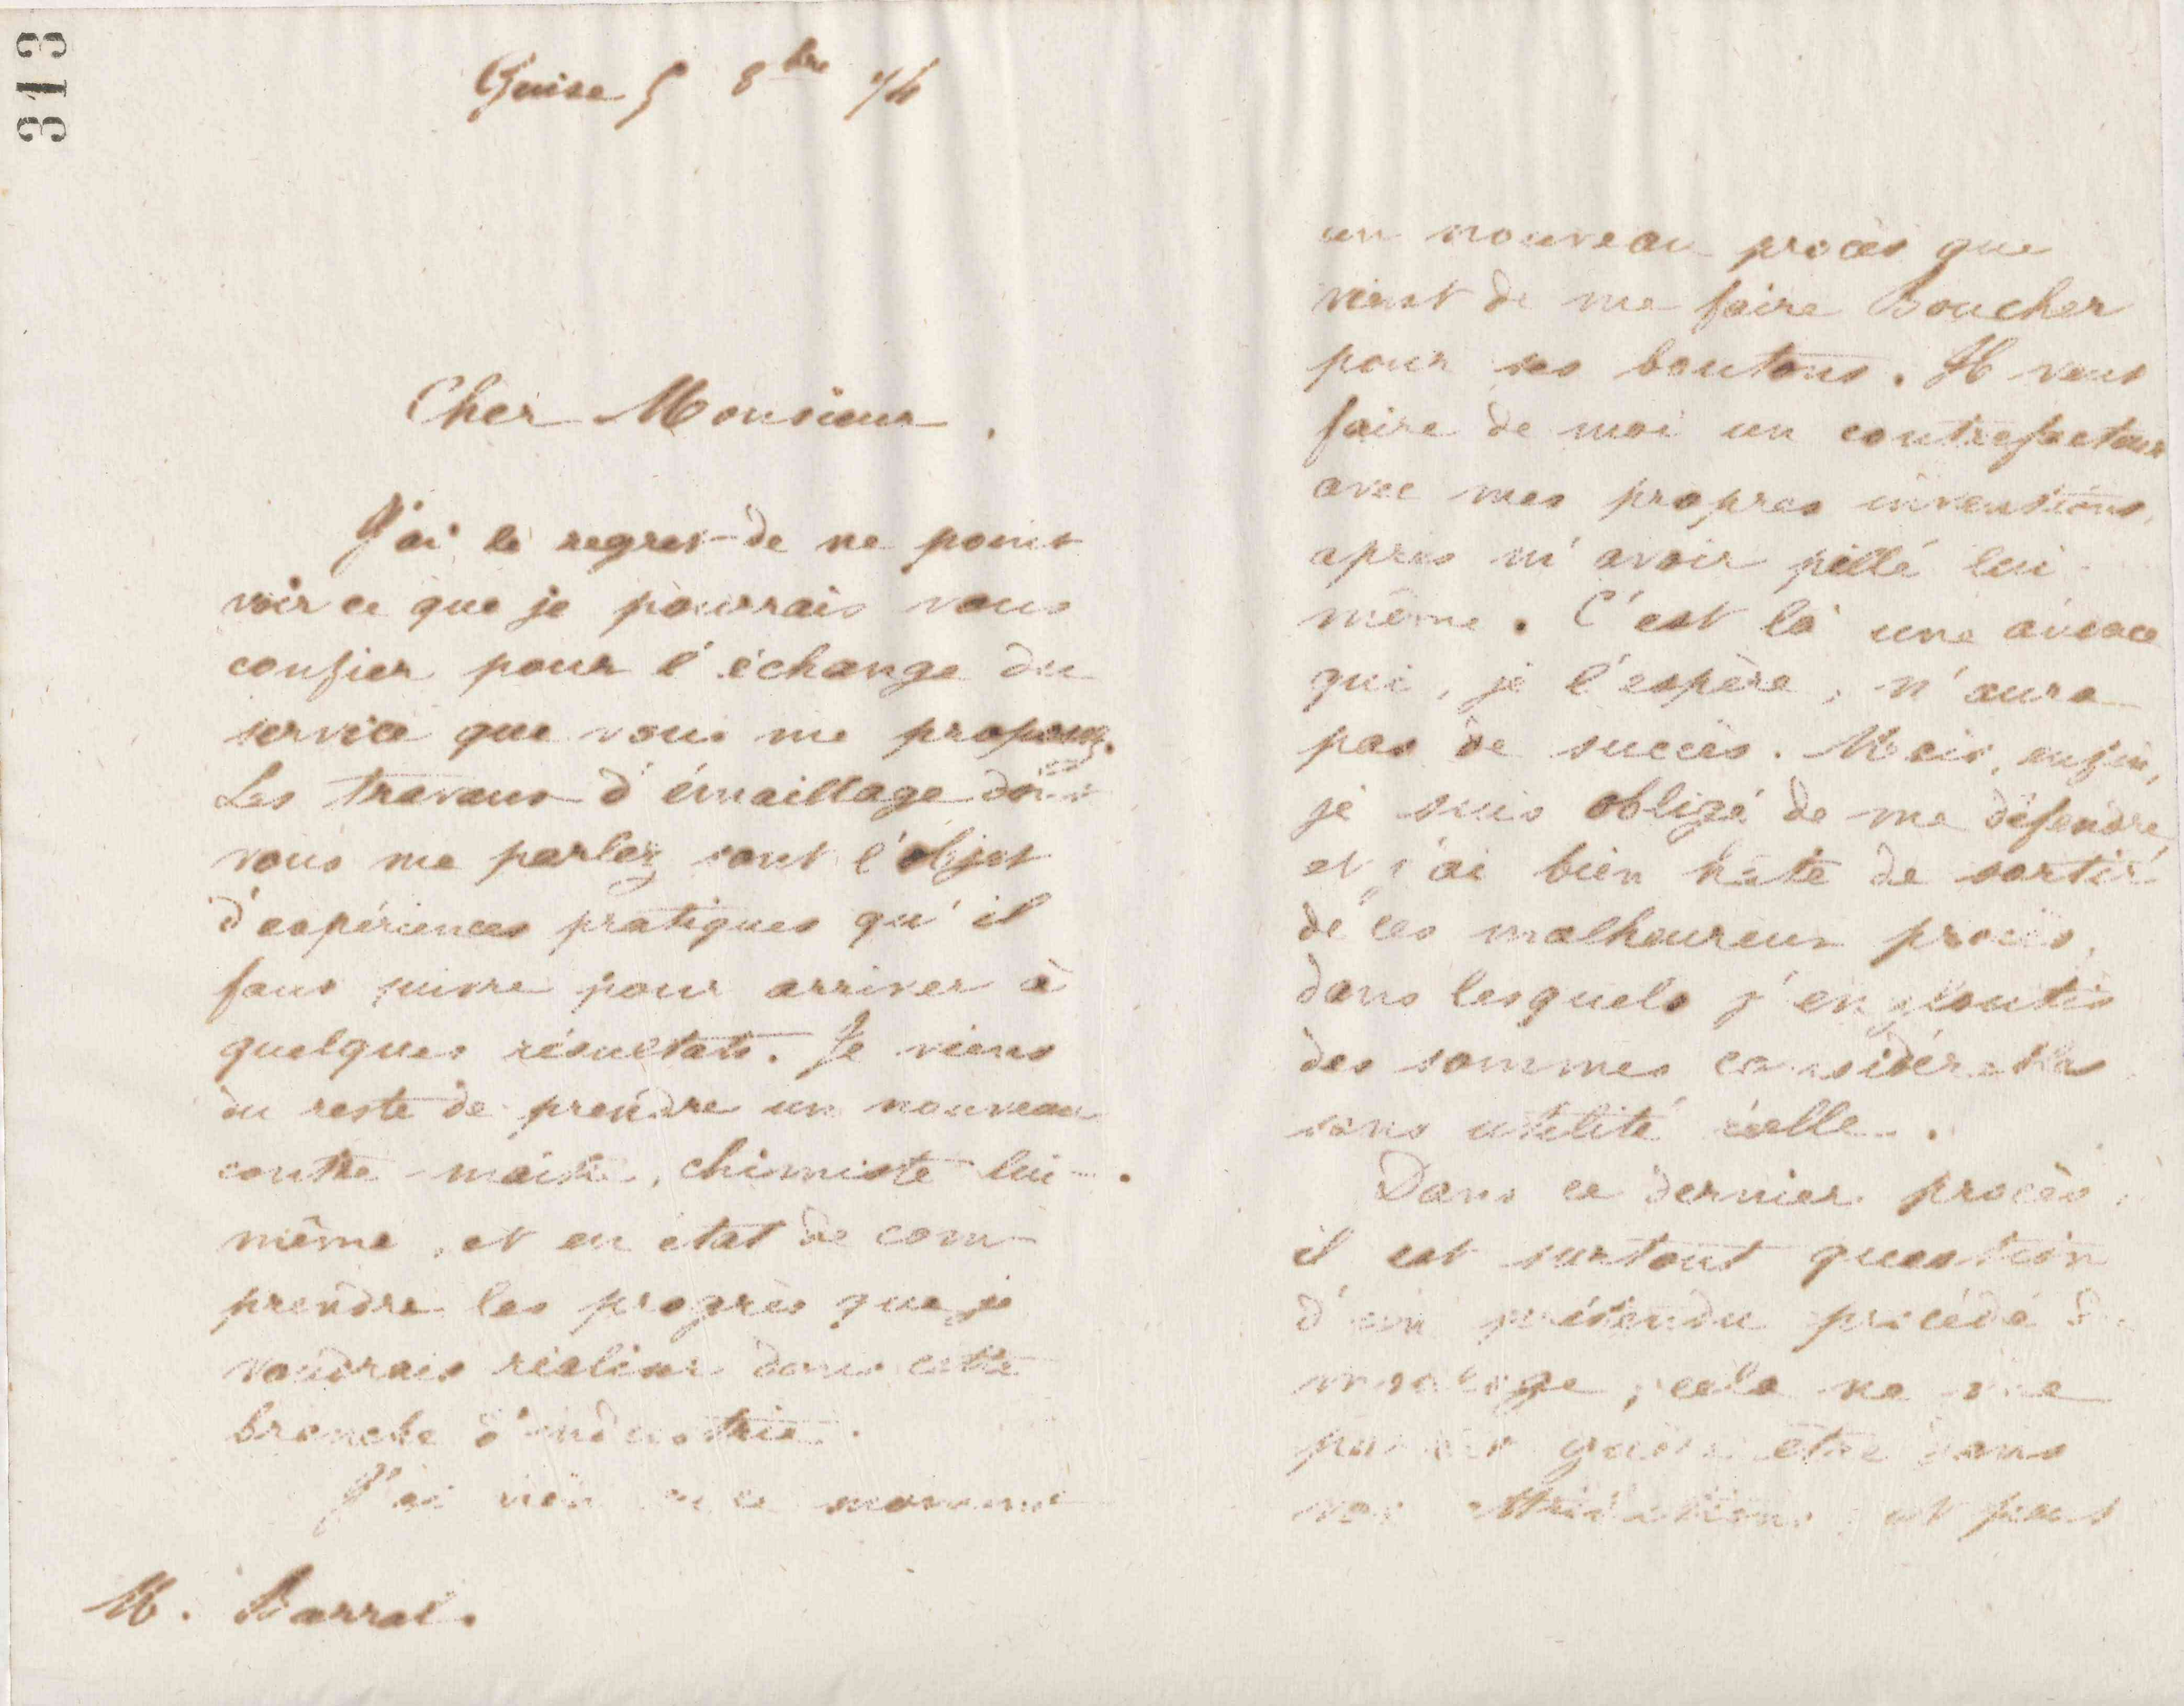 313
Guise 5 8bre 74
Cher Monsieur,
J'ai le regret de ne point
voir ce que je pourrais vous
confier pour l'échange du
service que vous me proposez.
Les travaux d'émaillage dont
vous me parlez sont l'objet
d'expériences pratiques qu'il
faut suivre pour arriver à
quelques résultats. Je viens
du reste de prendre un nouveau
contre-maître, chimiste lui-
même, et en état de com-
prendre les progrès que je
voudrais réaliser dans cette
branche d'industrie.
J'ai bien en ce moment
M. Barral.
un nouveau procès que
vient de me faire Boucher
pour ses boutons. Il veut
faire de moi un contrefacteur
avec mes propres inventions,
après m'avoir pillé lui-
même. C'est là une audace
qui, je l'espère, n'aura
pas de succès. Mais, enfin,
je suis obligé de me défendre,
et j'ai bien hâte de sortir
de ces malheureux procès,
dans lesquels j'engloutis
des sommes considérables
sans utilité réelle.
Dans ce dernier procès,
il est surtout question
d'un prétendu procédé de
moulage, cela ne me
paraît guère être dans
vos attributions, et peut